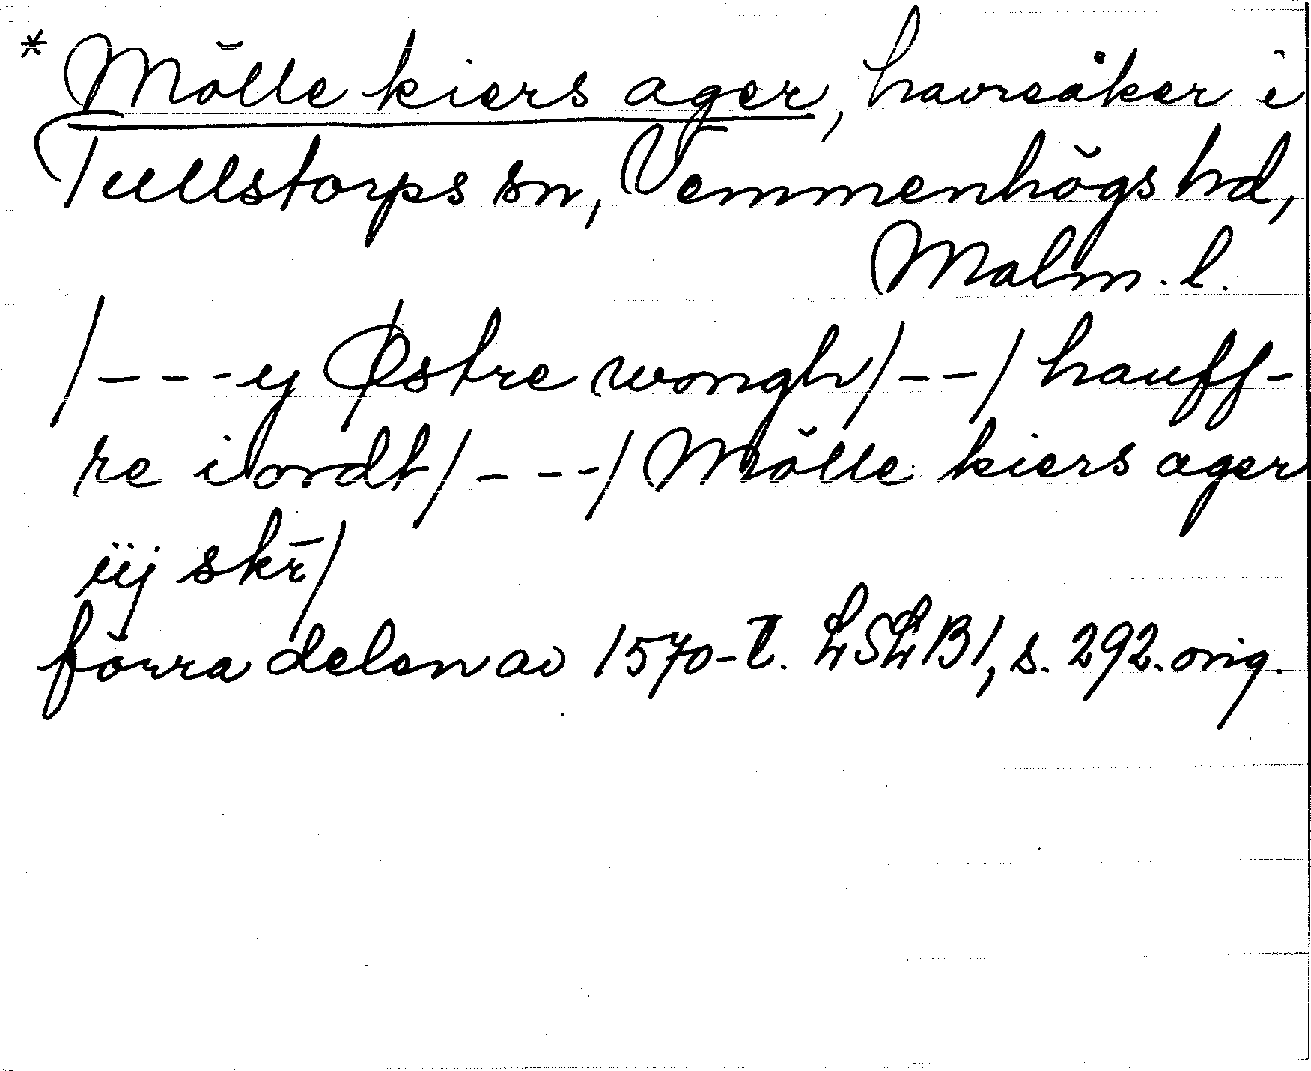 * Mölle kiers ager, havreåker i
Tullstorps sn, Vemmenhögs hd,
Malm. l.
/---y Østre wongh/--/ hauff-
re iordt/---/ Mölle kiers ager
iij skr̄/
förra delen av 1570-t. LSLB1, s. 292. orig.